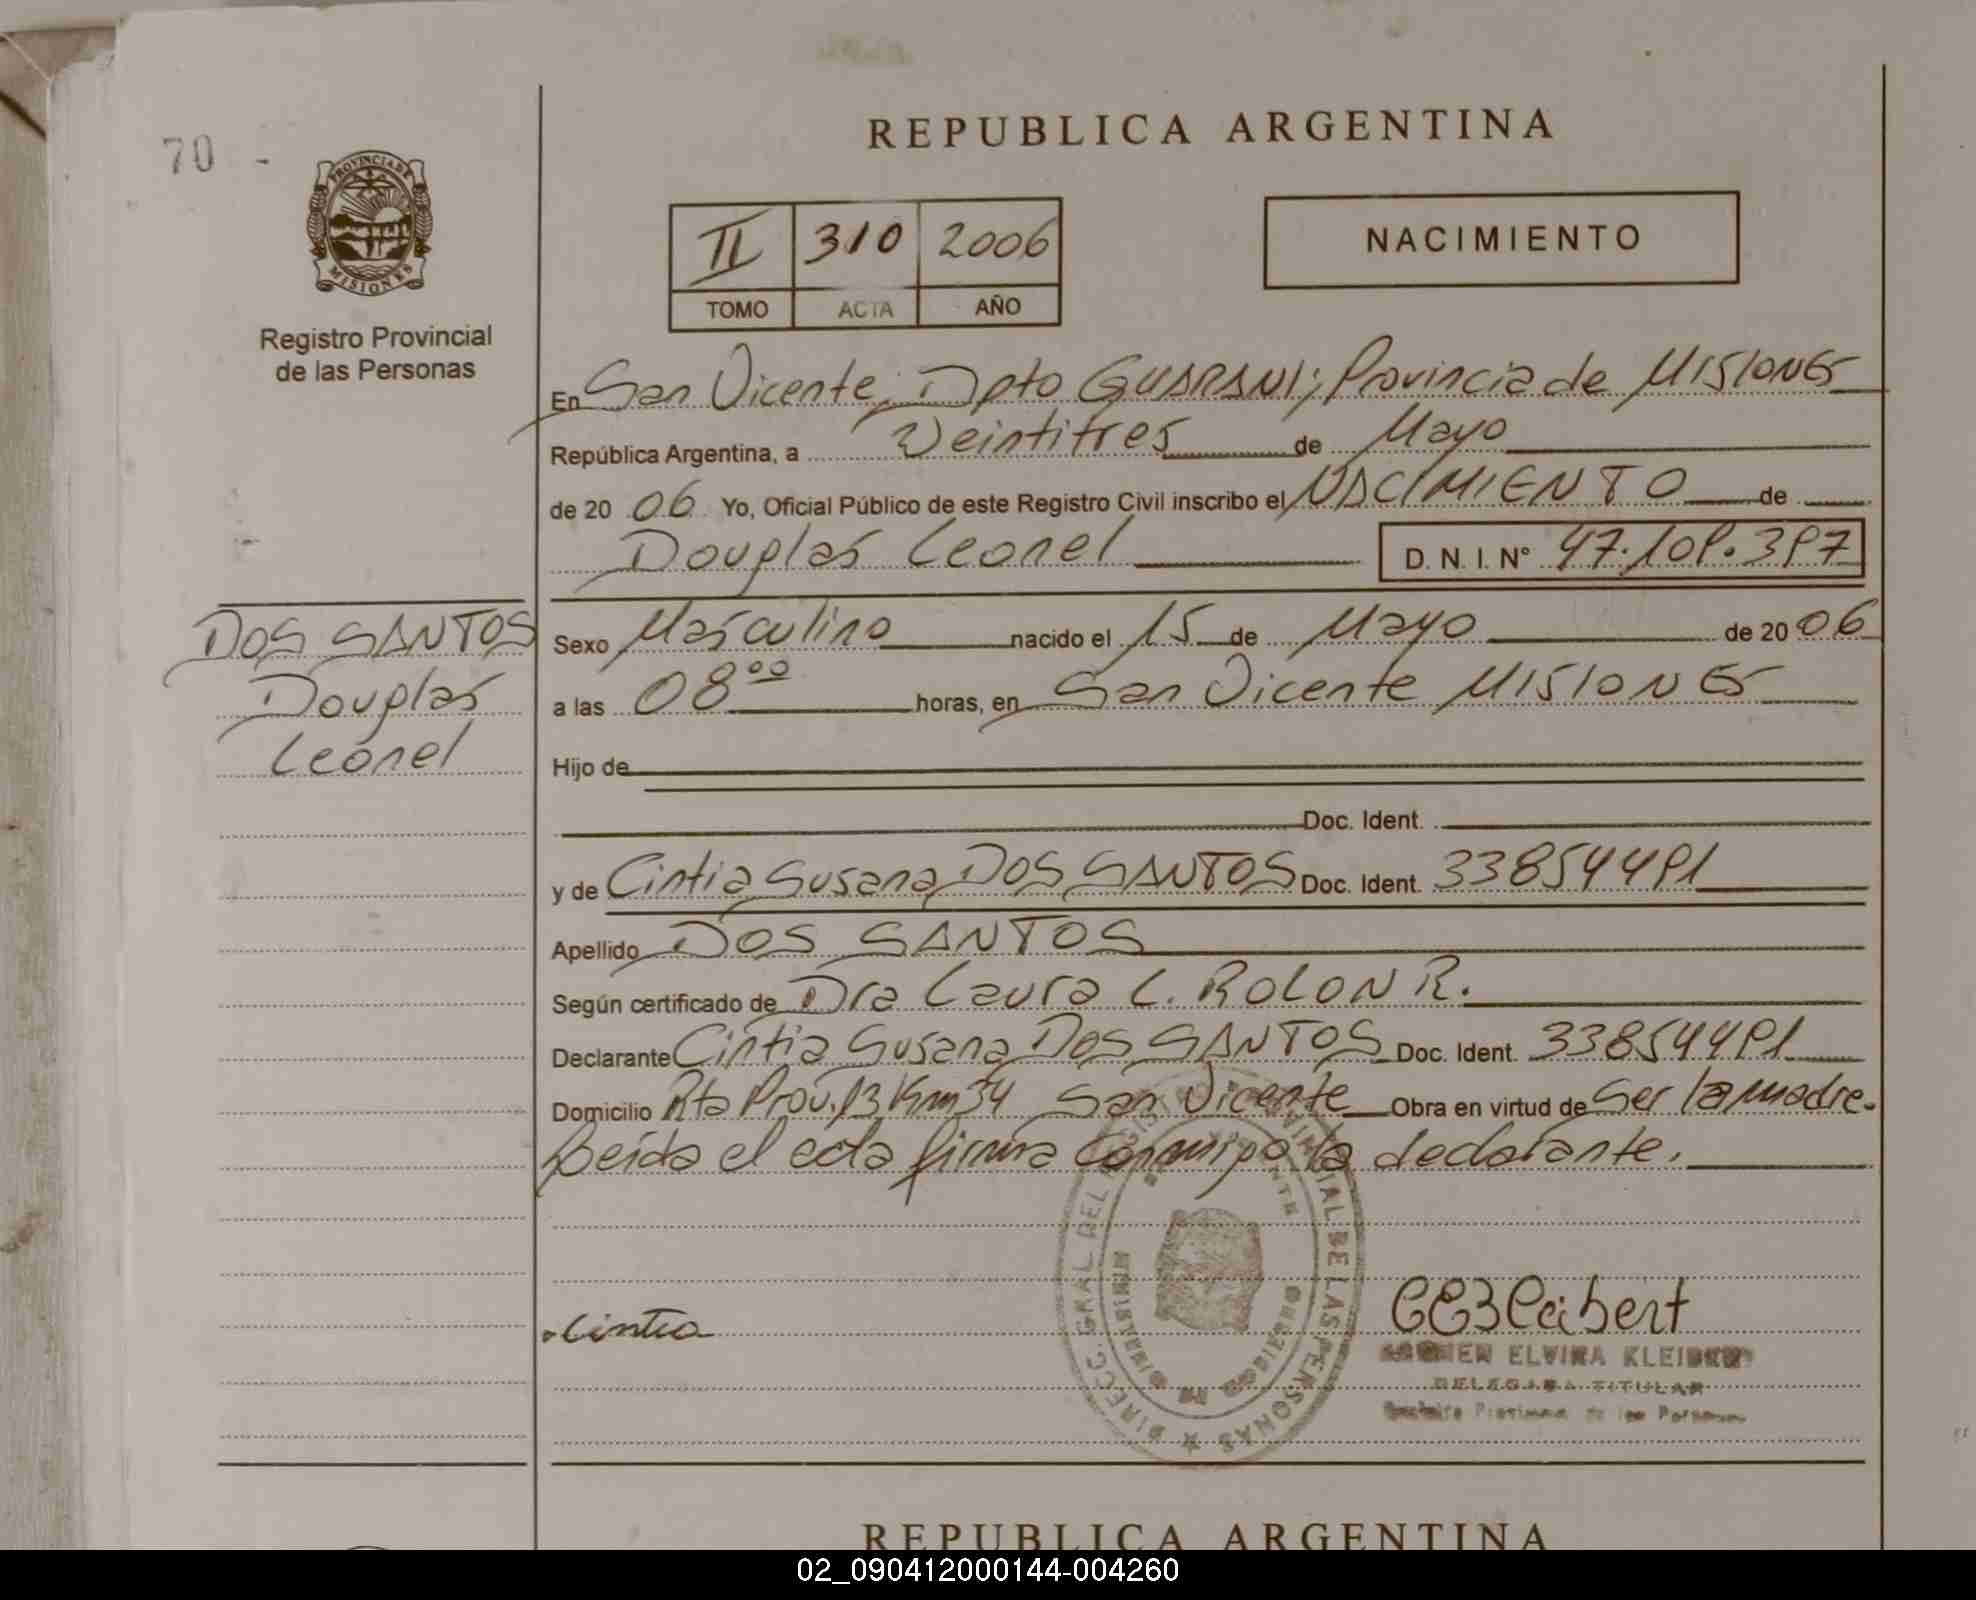 70 -
PROVINCIA DE
MISIONES
Registro Provincial
de las Personas
REPUBLICA ARGENTINA
II 310 2006
TOMO ACTA AÑO
NACIMIENTO
En San Vicente, Dpto GUARANI; Provincia de MISIONES
República Argentina, a Veintitres de Mayo
de 20 06 Yo, Oficial Público de este Registro Civil inscribo el NACIMIENTO de
Douglas Leonel D. N. I. N° 47.109.397
DOS SANTOS
Douglas
Leonel
Sexo Masculino nacido el 15 de Mayo de 20 06
a las 08⁰⁰ horas, en San Vicente MISIONES
Hijo de
Doc. Ident.
y de Cintia Susana DOS SANTOS Doc. Ident. 33854491
Apellido DOS SANTOS
Según certificado de Dra Laura L. ROLON R.
Declarante Cintia Susana DOS SANTOS Doc. Ident. 33854491
Domicilio Rta Prov. 13 Km 34 San Vicente Obra en virtud de Ser la madre.
Leída el acta firma conmigo la declarante.
Cintia
DIRECC. GRAL DEL REGISTRO PROVINCIAL DE LAS PERSONAS
ELVIRA KLEIBERT
DELEGADA TITULAR
REPUBLICA ARGENTINA
02_090412000144-004260